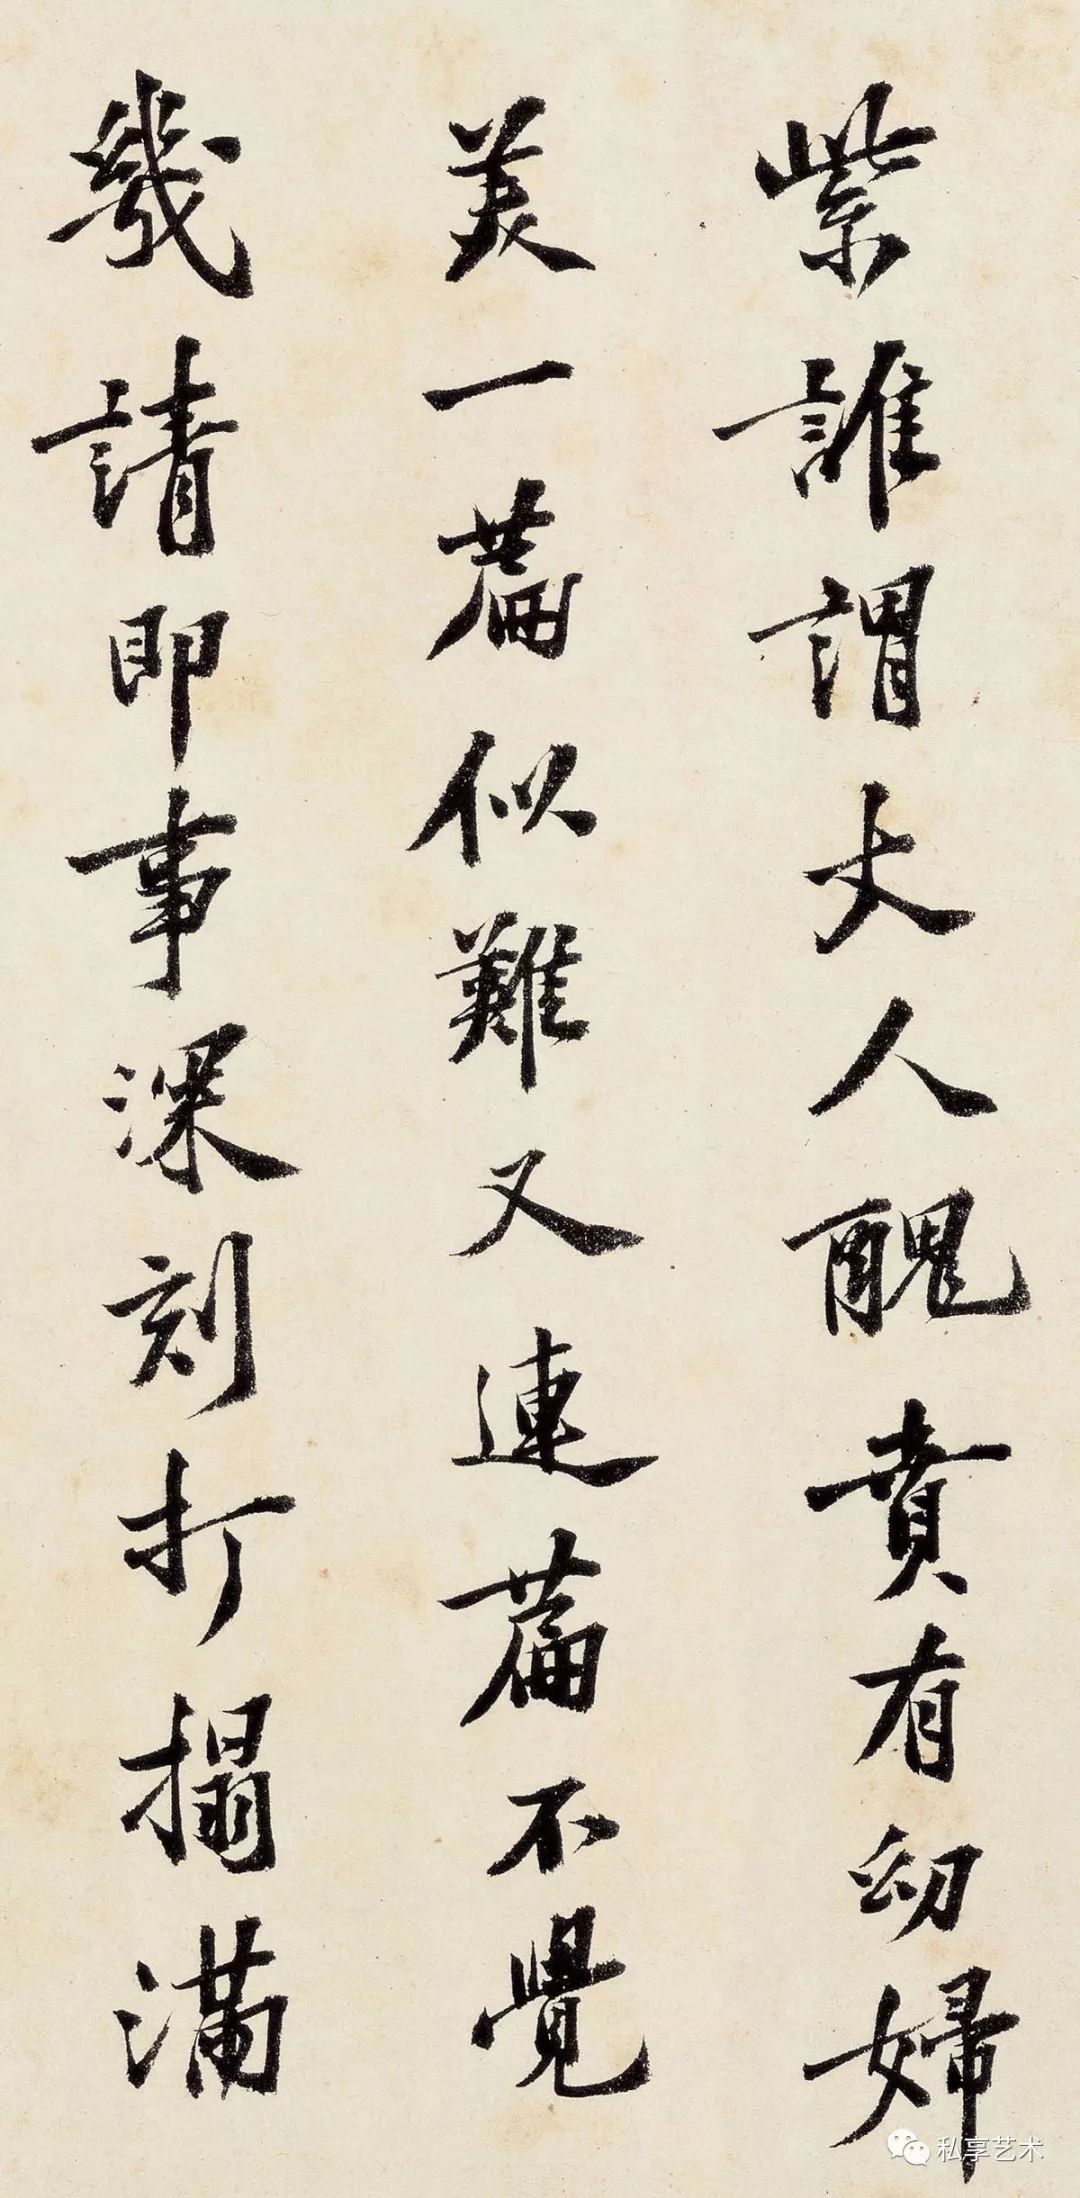 紫誰謂丈人醜賁有幼婦
美一篇似難又連篇不覺
幾請即事深刻打揭滿
私享艺术